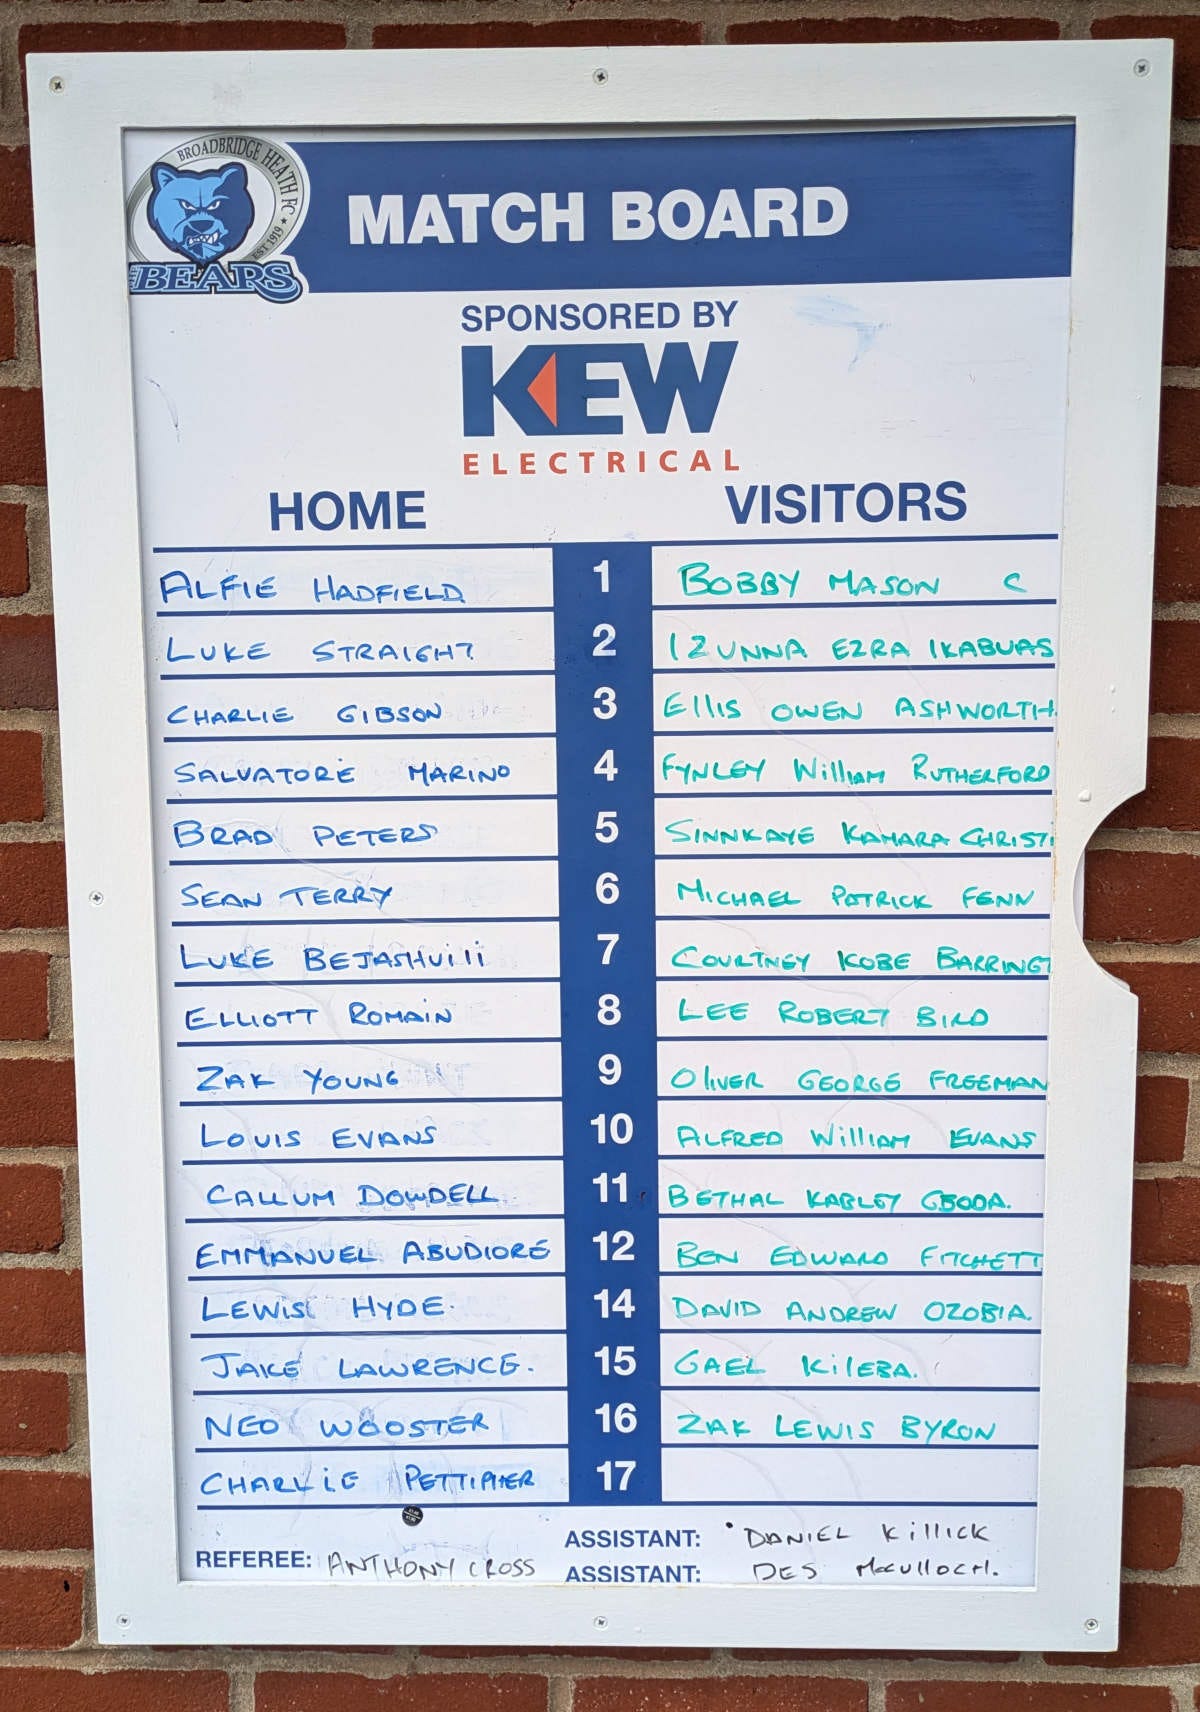 BROADBRIDGE HEATH FC
EST 1919 ★
THE BEARS
MATCH BOARD
SPONSORED BY
KEW
ELECTRICAL
HOME VISITORS
ALFIE HADFIELD 1 BOBBY MASON C
LUKE STRAIGHT 2 IZUNNA EZRA IKABUAS
CHARLIE GIBSON 3 EllIS OWEN ASHWORTH
SALVATORE MARINO 4 FYNLEY William RUTHERFORD
BRAD PETERS 5 SINNKAYE KAMARA CHRISTI
SEAN TERRY 6 MICHAEL PATRICK FENN
LUKE BEJASHVili 7 COURTNEY KOBE BARRINGT
ELLIOTT ROMAIN 8 LEE ROBERT BIRD
ZAK YOUNG 9 OliVER GEORGE FREEMAN
LOUIS EVANS 10 ALFRED William EVANS
CALLUM DOWDELL 11 BETHAL KABLEY GBODA.
EMMANUEL ABUDIORE 12 BEN EDWARD FITCHETT
LEWIS HYDE. 14 DAVID ANDREW OZOBIA.
JAKE LAWRENCE. 15 GAEL KiLEBA.
NED WOOSTER 16 ZAK LEWIS BYRON
CHARLiE PETTIPHER 17
REFEREE: ANTHONY CROSS ASSISTANT: DANIEL Killick
ASSISTANT: DES McCULLOCH.